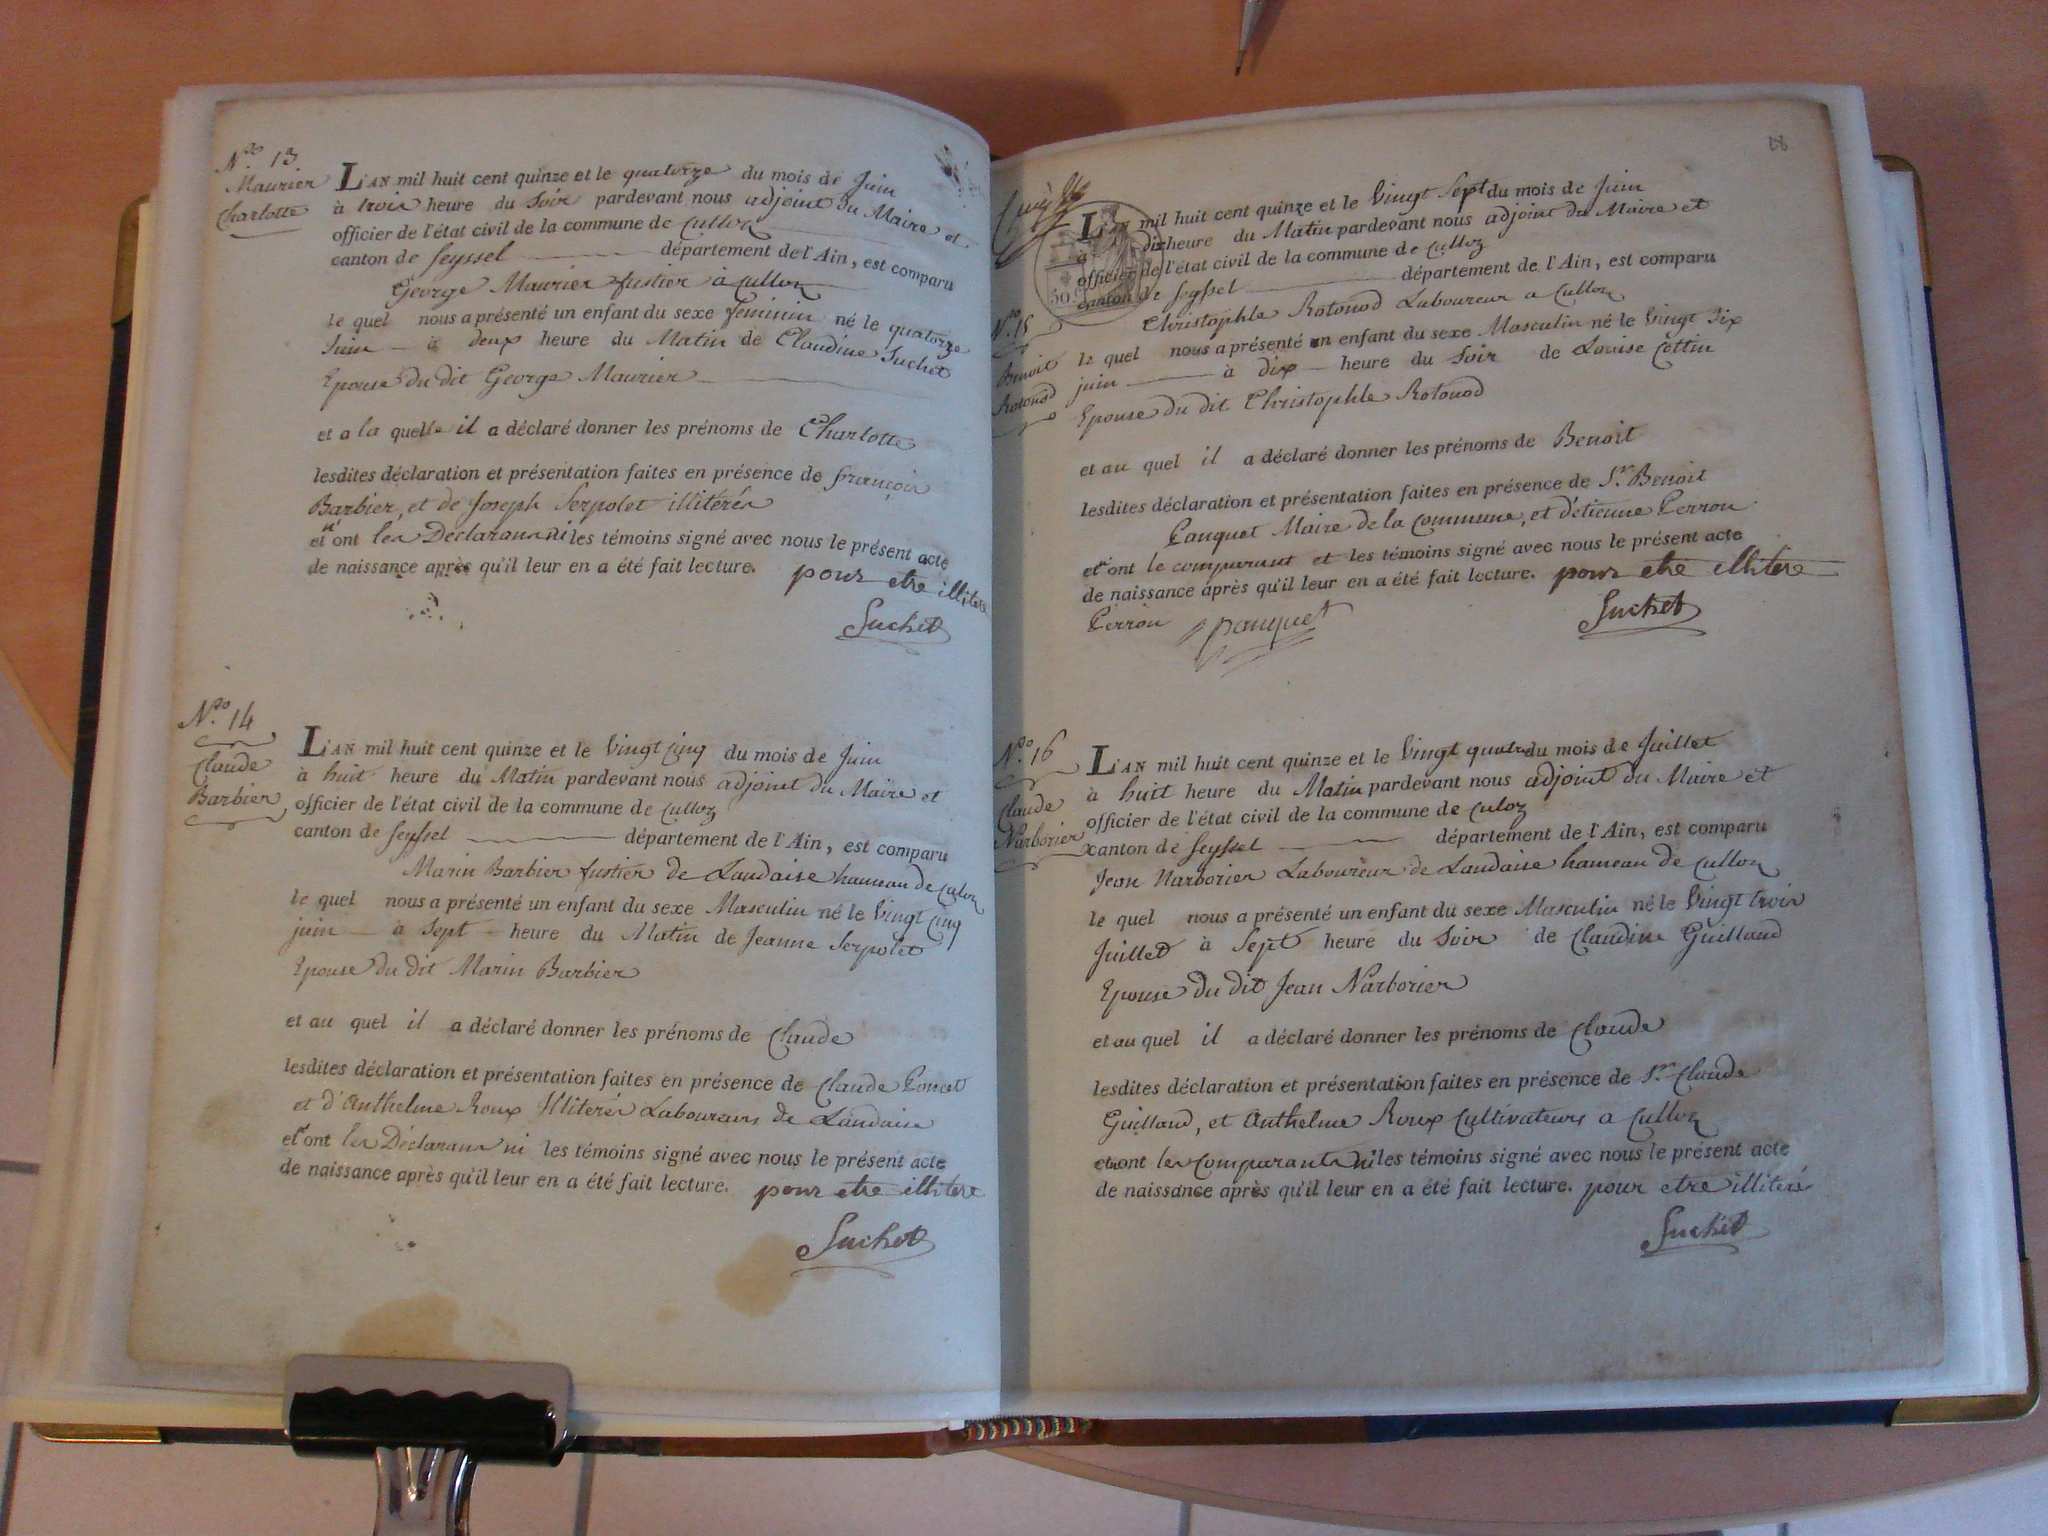 N.ro 13
Maurier
Charlotte
L'AN mil huit cent quinze et le quatorze du mois de Juin
à trois heure du Soir pardevant nous adjoint du Maire et
officier de l'état civil de la commune de Culloz
canton de Seyssel département de l'Ain, est comparu
George Maurier fustier à Culloz
le quel nous a présenté un enfant du sexe feminin né le quatorze
Juin à deux heure du Matin de Claudine Suchet
Epouse du dit George Maurier
et a la quelle il a déclaré donner les prénoms de Charlotte
lesdites déclaration et présentation faites en présence de françois
Barbier, et de Joseph Serpolet illiterés
et n'ont les Déclarans ni les témoins signé avec nous le présent acte
de naissance après qu'il leur en a été fait lecture. pour etre illitere
Suchet
N.ro 14
Claude
Barbier
L'AN mil huit cent quinze et le Vingt cinq du mois de Juin
à huit heure du Matin pardevant nous adjoint du Maire et
officier de l'état civil de la commune de Culloz
canton de Seyssel département de l'Ain, est comparu
Marin Barbier fustier de Landaise hameau de Culoz
le quel nous a présenté un enfant du sexe Masculin né le Vingt cinq
juin à Sept heure du Matin de Jeanne Serpolet
Epouse du dit Marin Barbier
et au quel il a déclaré donner les prénoms de Claude
lesdites déclaration et présentation faites en présence de Claude Poncet
et d'Anthelme Roux Illiterés Laboureurs de Landaise
et ont les Déclarans ni les témoins signé avec nous le présent acte
de naissance après qu'il leur en a été fait lecture. pour etre illitere
Suchet
18
N.ro 15
Benoit
Rotonod
50
L'AN mil huit cent quinze et le Vingt Sept du mois de Juin
à dix heure du Matin pardevant nous adjoint du Maire et
officier de l'état civil de la commune de Culloz
canton de Seyssel département de l'Ain, est comparu
Christophle Rotonod Laboureur a Culloz
le quel nous a présenté un enfant du sexe Masculin né le Vingt Six
juin à dix heure du Soir de Louise Cottin
Epouse du dit Christophle Rotonod
et au quel il a déclaré donner les prénoms de Benoit
lesdites déclaration et présentation faites en présence de S.r Benoit
Pauquet Maire de la Commune, et d'étienne Perrou
et ont le comparant et les témoins signé avec nous le présent acte
de naissance après qu'il leur en a été fait lecture. pour etre illitere
Perrou Pauquet Suchet
N.ro 16
Claude
Narborier
L'AN mil huit cent quinze et le Vingt quatre du mois de Juillet
à huit heure du Matin pardevant nous adjoint du Maire et
officier de l'état civil de la commune de Culoz
canton de Seyssel département de l'Ain, est comparu
Jean Narborier Laboureur de Landaise hameau de Culloz
le quel nous a présenté un enfant du sexe Masculin né le Vingt trois
Juillet à Sept heure du Soir de Claudine Guilland
Epouse du dit Jean Narborier
et au quel il a déclaré donner les prénoms de Claude
lesdites déclaration et présentation faites en présence de S.r Claude
Guilland, et Anthelme Roux Cultivateurs a Culloz
et n'ont les comparants ni les témoins signé avec nous le présent acte
de naissance après qu'il leur en a été fait lecture. pour etre illiteré
Suchet